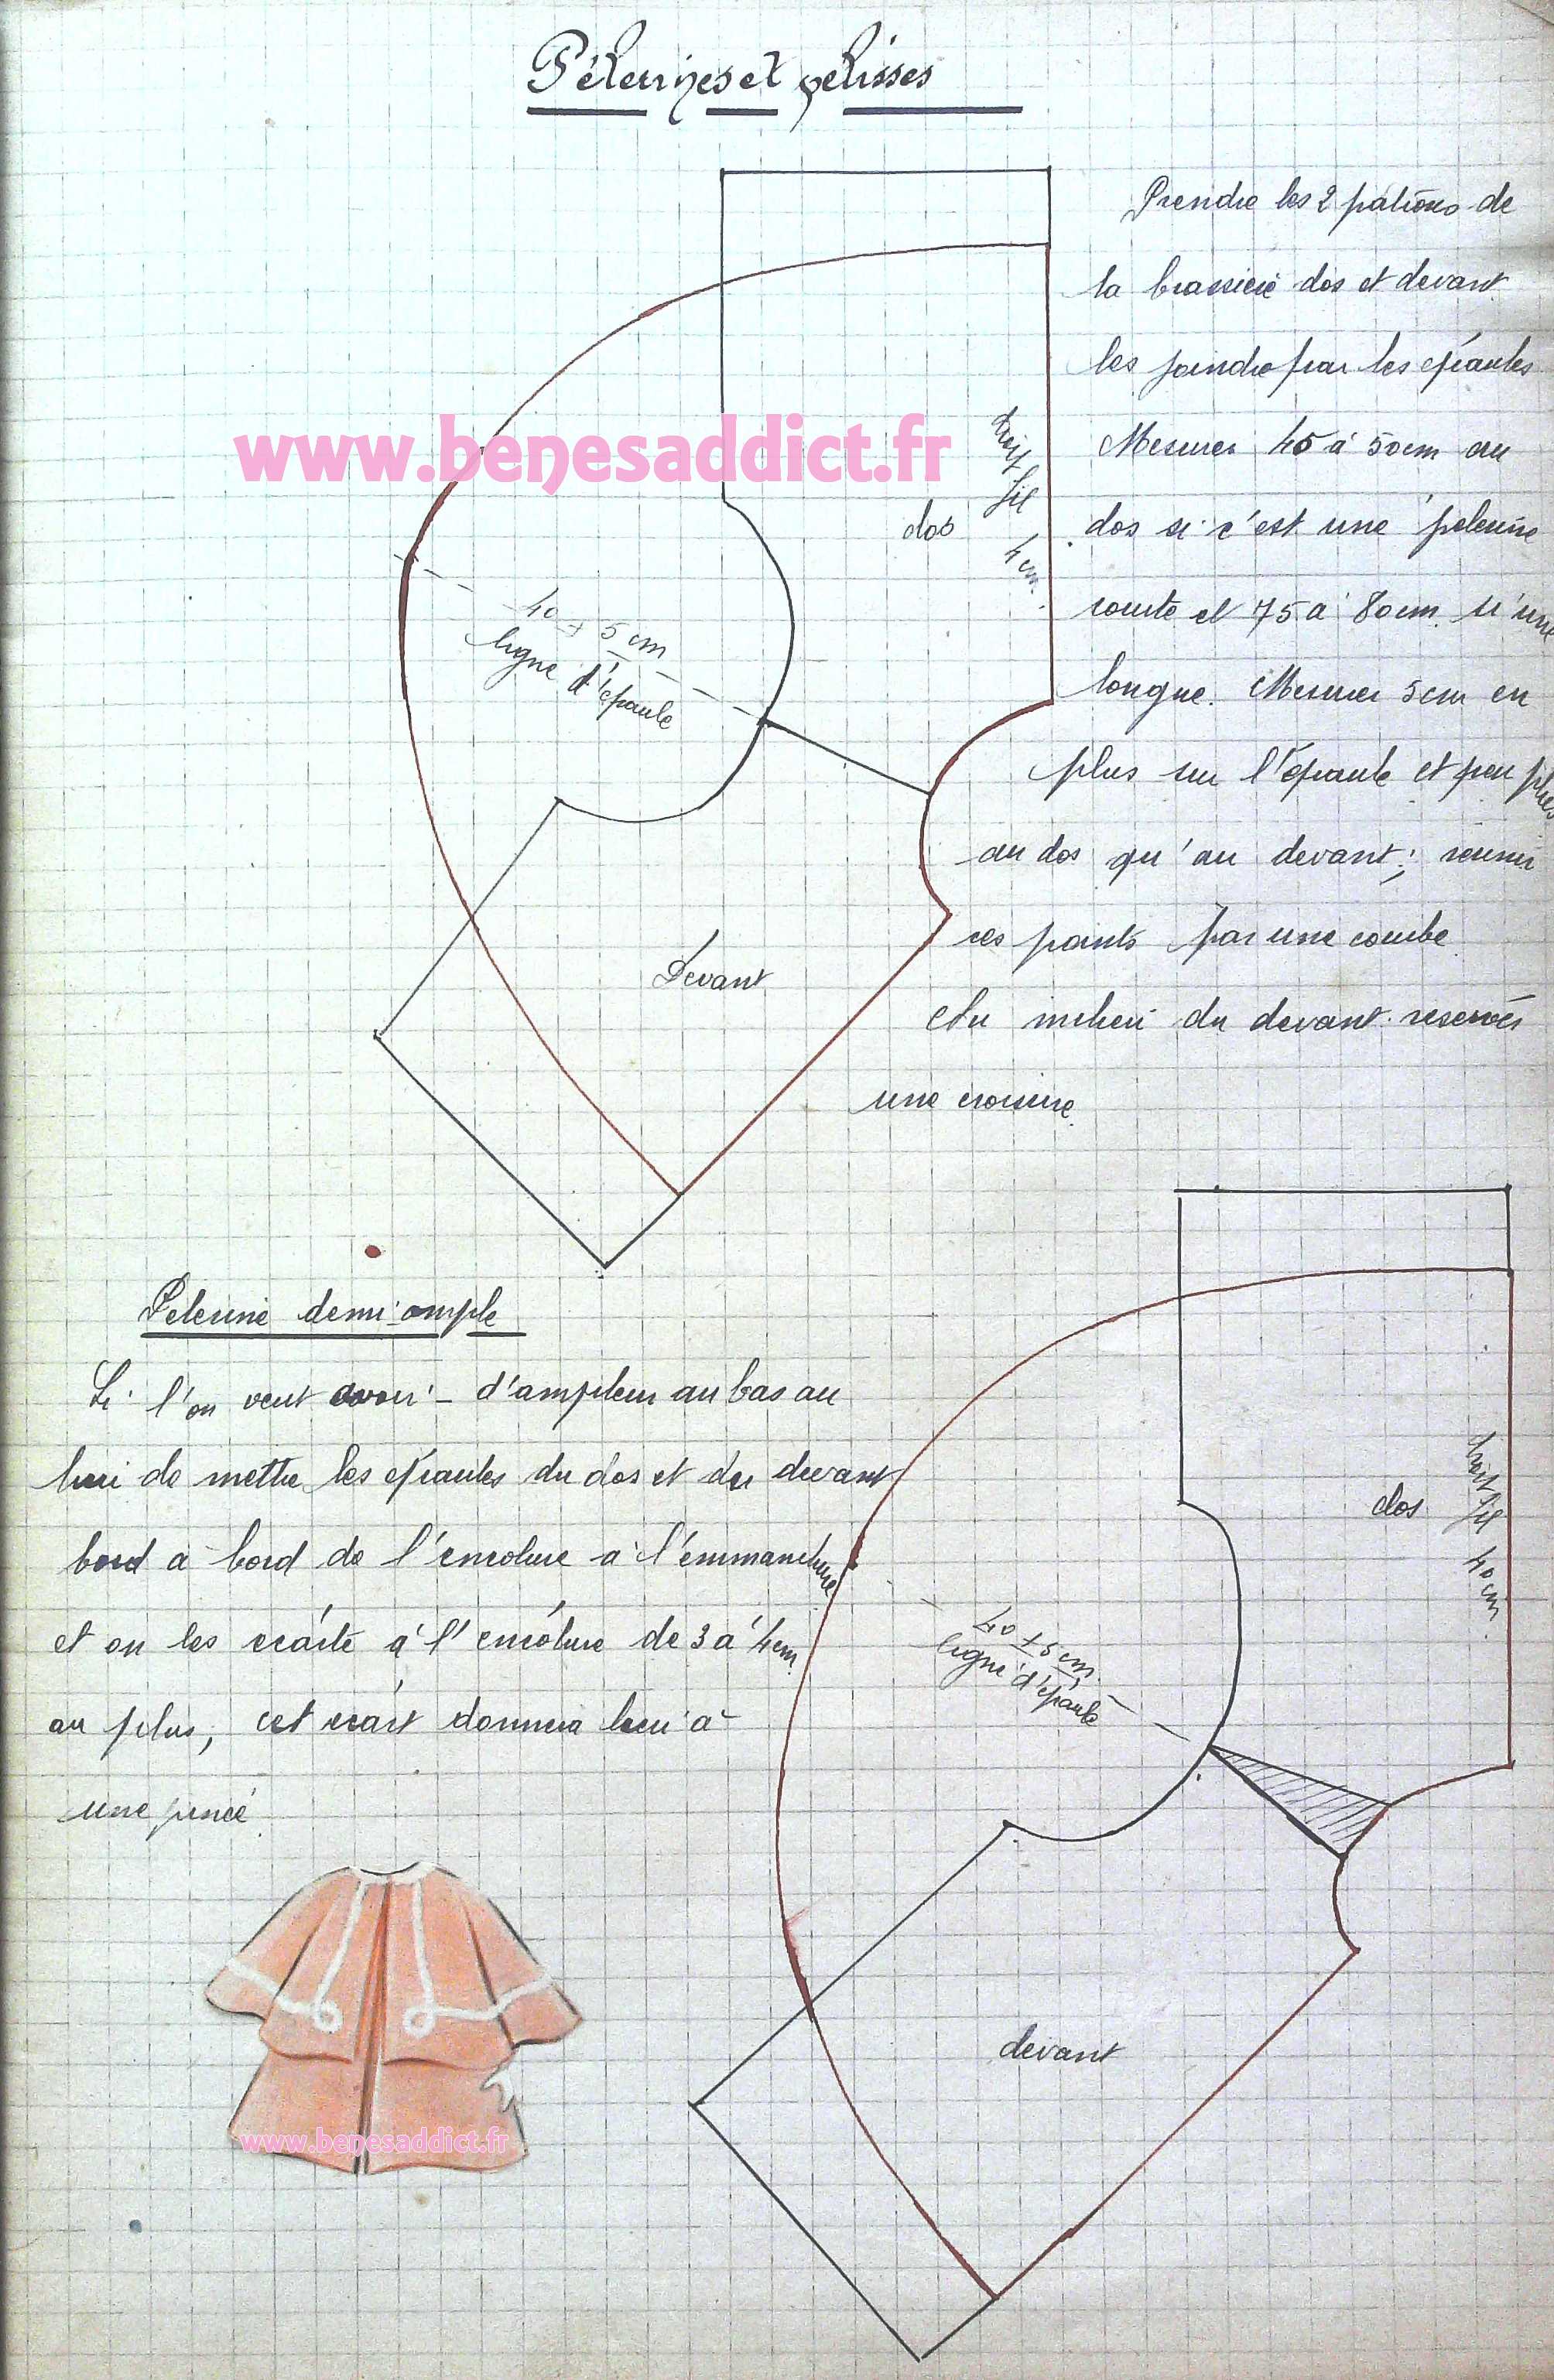 Pélerines et pelisses
Prendre les 2 patrons de
la brassière dos et devant
les joindre par les épaules
Mesurer 45 à 50cm au
dos si c'est une pelerine
courte et 75 à 80cm si une
longue. Mesurer 5cm en
plus sur l'épaule et peu plus
au dos qu'au devant; réunir
ces points par une courbe
Au milieu du devant reserver
une croisure.
www.benesaddict.fr
dos
droit fil
4 cm.
40 + 5 cm
ligne d'épaule
Devant
Pelerine demi-ample
Si l'on veut avoir - d'ampleur au bas au
lieu de mettre les épaules du dos et du devant
bord à bord de l'encolure à l'emmanchure
et on les écarte à l'encolure de 3 à 4cm
au plus, cet écart donnera lieu à
une pince
dos
droit fil
40 cm.
40 + 5 cm.
ligne d'épaule
devant
www.benesaddict.fr